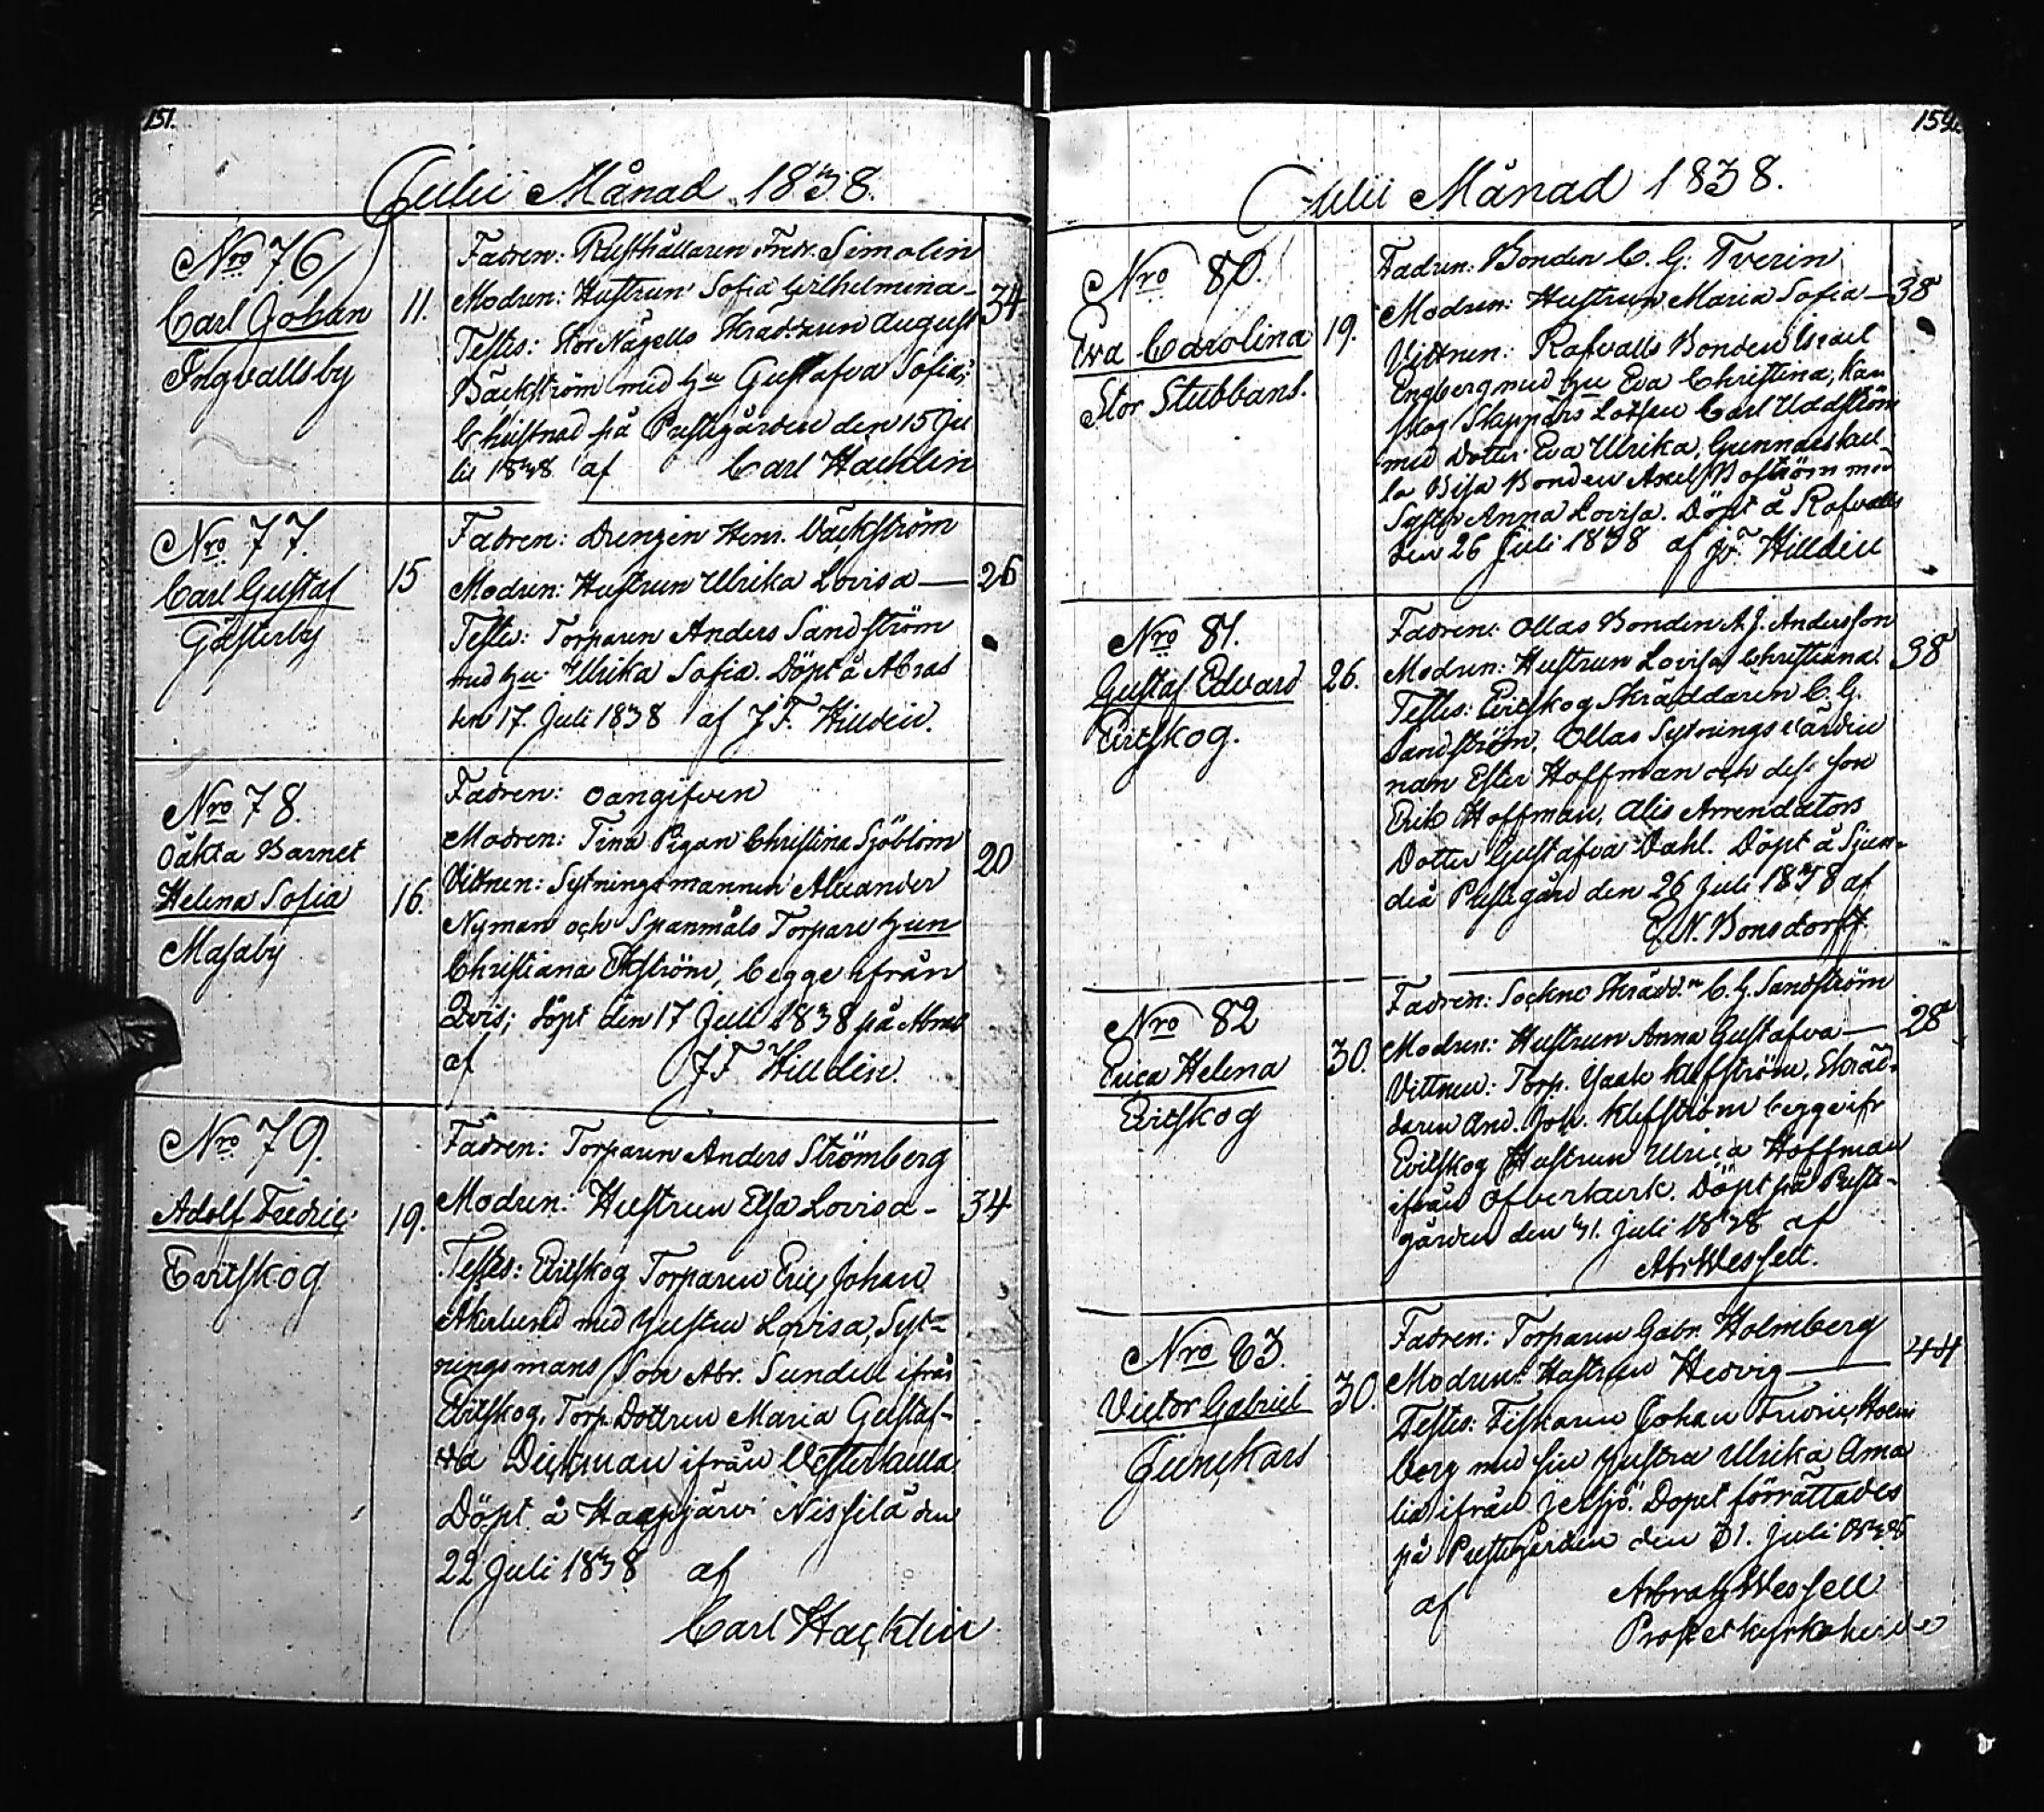 151.
Julii Månad 1838.
Nro 76
Carl Johan
Ingvallsby
11.
Fadren: Rusthållaren Fredr. Simolin
Modren: Hustrun Sofia Wilhelmina -
34
Testes: Stor Nägells Skräddaren August
Bäckström med hu Gustafva Sofia;
Christnad på Prestegården den 15 Ju
lii 1838 af Carl Hacklin
Nro 77.
Carl Gustaf
Gästerby
15
Fadren: Drengen Henr. Bäckström
Modren: Hustrun Ulrika Lovisa —
26
Testes: Torparen Anders Sandström
med hu Ulrika Sofia. Döpt å Abras
den 17. Juli 1838 af J F. Hilldin.
Nro 78.
Oäkta Barnet
Helena Sofia
Masaby
16.
Fadren: Oangifven
Modren: Tina Pigan Christina Sjöblom
20
Vittnen: Sytningsmannen Alexander
Nyman och Spanmåls Torpare hun
Christiana Ekström, begge ifrån
Qvis; döpt den 17 Juli 1838 på Abras
af J F Hilldin.
Nro 79.
Adolf Fredric
Evitskog
19.
Fadren: Torparen Anders Strömberg
Modren: Hustrun Elsa Lovisa -
34
Testes: Evitskog Torparen Eric Johan
Åkerlund med hustru Lovisa, Syt-
ningsmans Son Abr. Sundell ifrån
Evitskog, Torp. Dottren Maria Gustaf-
va Dickman ifrån Vesterkulla.
Döpt å Haapjärvi Nissilä den
22 Juli 1838 af
Carl Hacklin
Julii Månad 1838.
Nro 80.
Eva Carolina
Stor Stubbans.
19.
Fadren: Bonden C. G. Tverin
Modren: Hustrun Maria Sofia —
38
Vittnen: Rafvalls Bonden Israel
Engberg med hu Eva Christina, Kan
skog Skeppars Lotsen Carl Uddström
med Dotter Eva Ulrika, Gunnarskul
la Bisa Bonden Axel Boström med
Syster Anna Lovisa. Döpt å Rafvalls
den 26 Juli 1838 af J F. Hilldin
Nro 81.
Gustaf Edvard
Evitskog.
26.
Fadren: Ollas Bonden A. J. Andersson
Modren: Hustrun Lovisa Christiana.
38
Testes: Evitskog Skräddaren C. G.
Sandström, Ollas Sytningsvärdin
nan Ester Hoffman och dess son
Erik Hoffman, Alis Arrendators
Dotter Gustafva Dahl. Döpt å Sjun-
deå Prestegård den 26 Juli 1838 af
E. N. Bonsdorff
Nro 82
Erica Helena
Evitskog
30.
Fadren: Sockne Skrädd.n C. G. Sandström
Modren: Hustrun Anna Gustafva —
28
Vittnen: Torp. Isaak Klefström, Skräd-
daren And. Joh. Klefström begge ifr
Evitskog Hustrun Ulrica Hoffman
ifrån Ofverkurk. Döpt på Preste-
gården den 31. Juli 1838 af
Abr Wessell.
Nro 83.
Victor Gabriel
30.
Fadren: Torparen Gabr. Holmberg
Modren: Hustrun Hedvig —
44
Testes: Fiskaren Johan Fredric Holm
berg med sin hustru Ulrika Ama
lia ifrån Jersjö. Dopet förrättades
på Prestegården den 31. Juli 1838
af Abrah Wessell
Prost et kyrkoherde